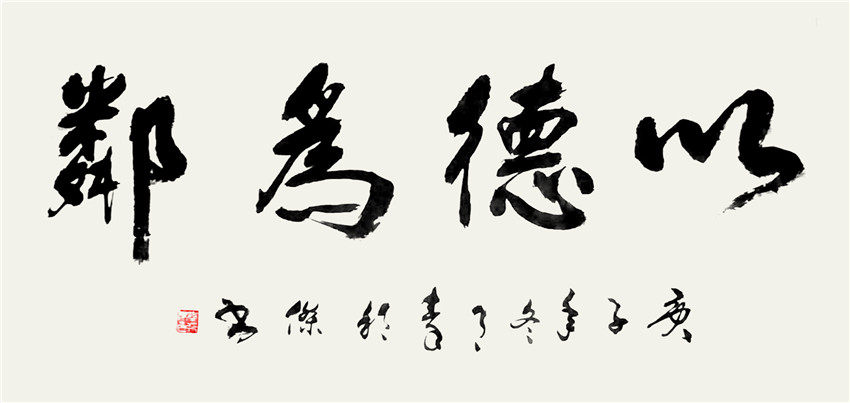 以德為鄰
庚子年冬月青傑書